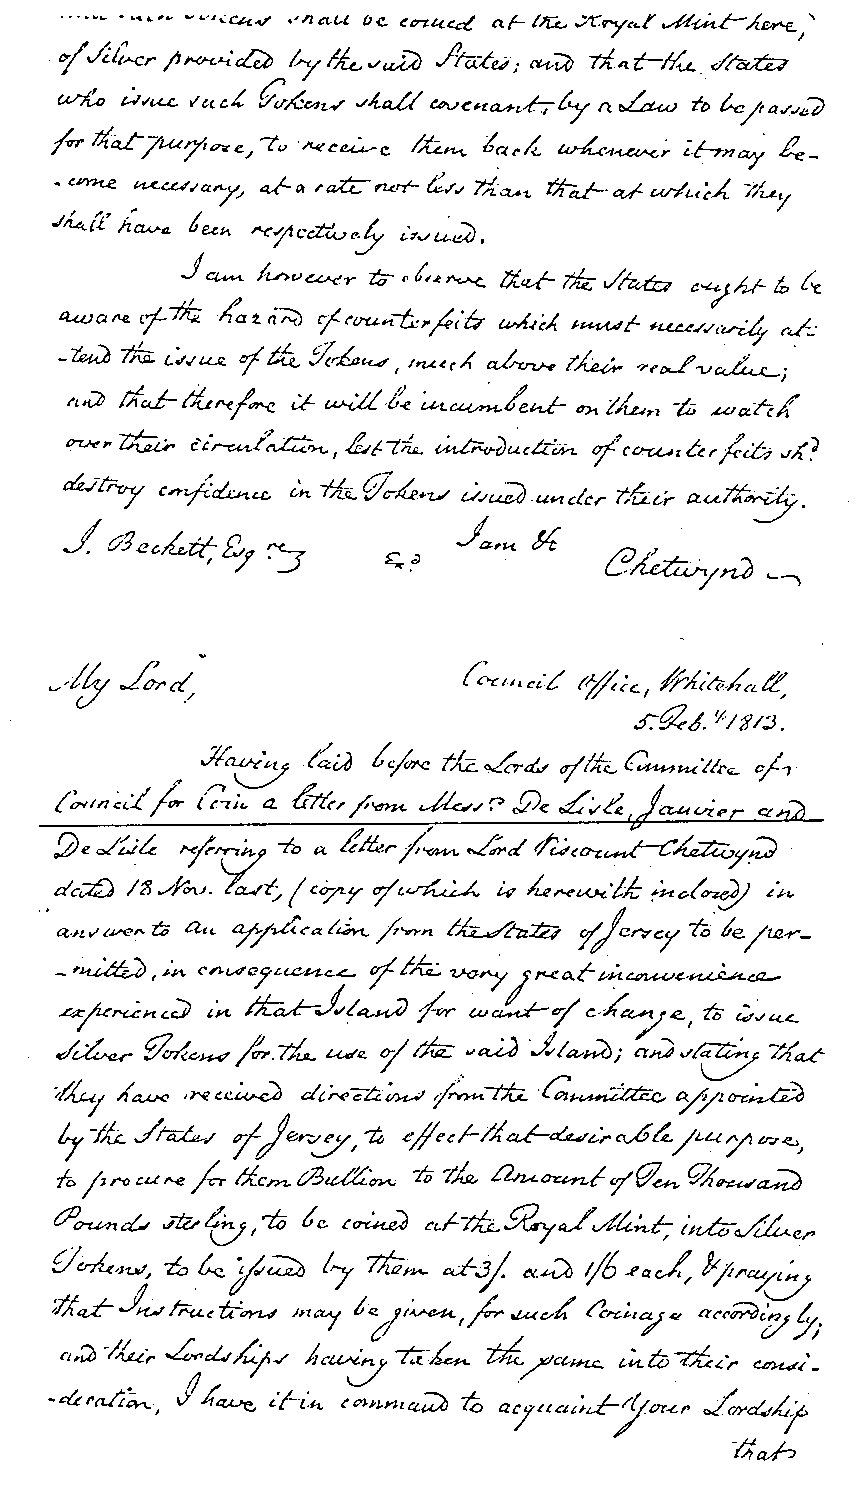 Tokens shall be coined at the Royal Mint here,
of Silver provided by the said States; and that the States
who issue such Tokens shall covenant, by a Law to be passed
for that purpose, to receive them back whenever it may be-
-come necessary, at a rate not less than that at which they
shall have been respectively issued.
I am however to observe that the States ought to be
aware of the hazard of counterfeits which must necessarily at-
-tend the issue of the Tokens, much above their real value;
and that therefore it will be incumbent on them to watch
over their circulation, lest the introduction of counterfeits shd
destroy confidence in the Tokens issued under their authority.
I am &c
J. Beckett, Esqre
Chetwynd
My Lord,
Council Office, Whitehall,
5. Feby 1813.
Having laid before the Lords of the Committee of
Council for Coin a letter from Messrs De Lisle, Janvier and
De Lisle referring to a letter from Lord Viscount Chetwynd
dated 18 Nov. last, (copy of which is herewith inclosed) in
answer to an application from the States of Jersey to be per-
-mitted, in consequence of the very great inconvenience
experienced in that Island for want of change, to issue
Silver Tokens for the use of the said Island; and stating that
they have received directions from the Committee appointed
by the States of Jersey, to effect that desirable purpose,
to procure for them Bullion to the Amount of Ten Thousand
Pounds sterling, to be coined at the Royal Mint, into Silver
Tokens, to be issued by them at 3/. and 1/6 each, & praying
that Instructions may be given, for such Coinage accordingly;
and their Lordships having taken the same into their consi-
-deration, I have it in command to acquaint Your Lordship
that